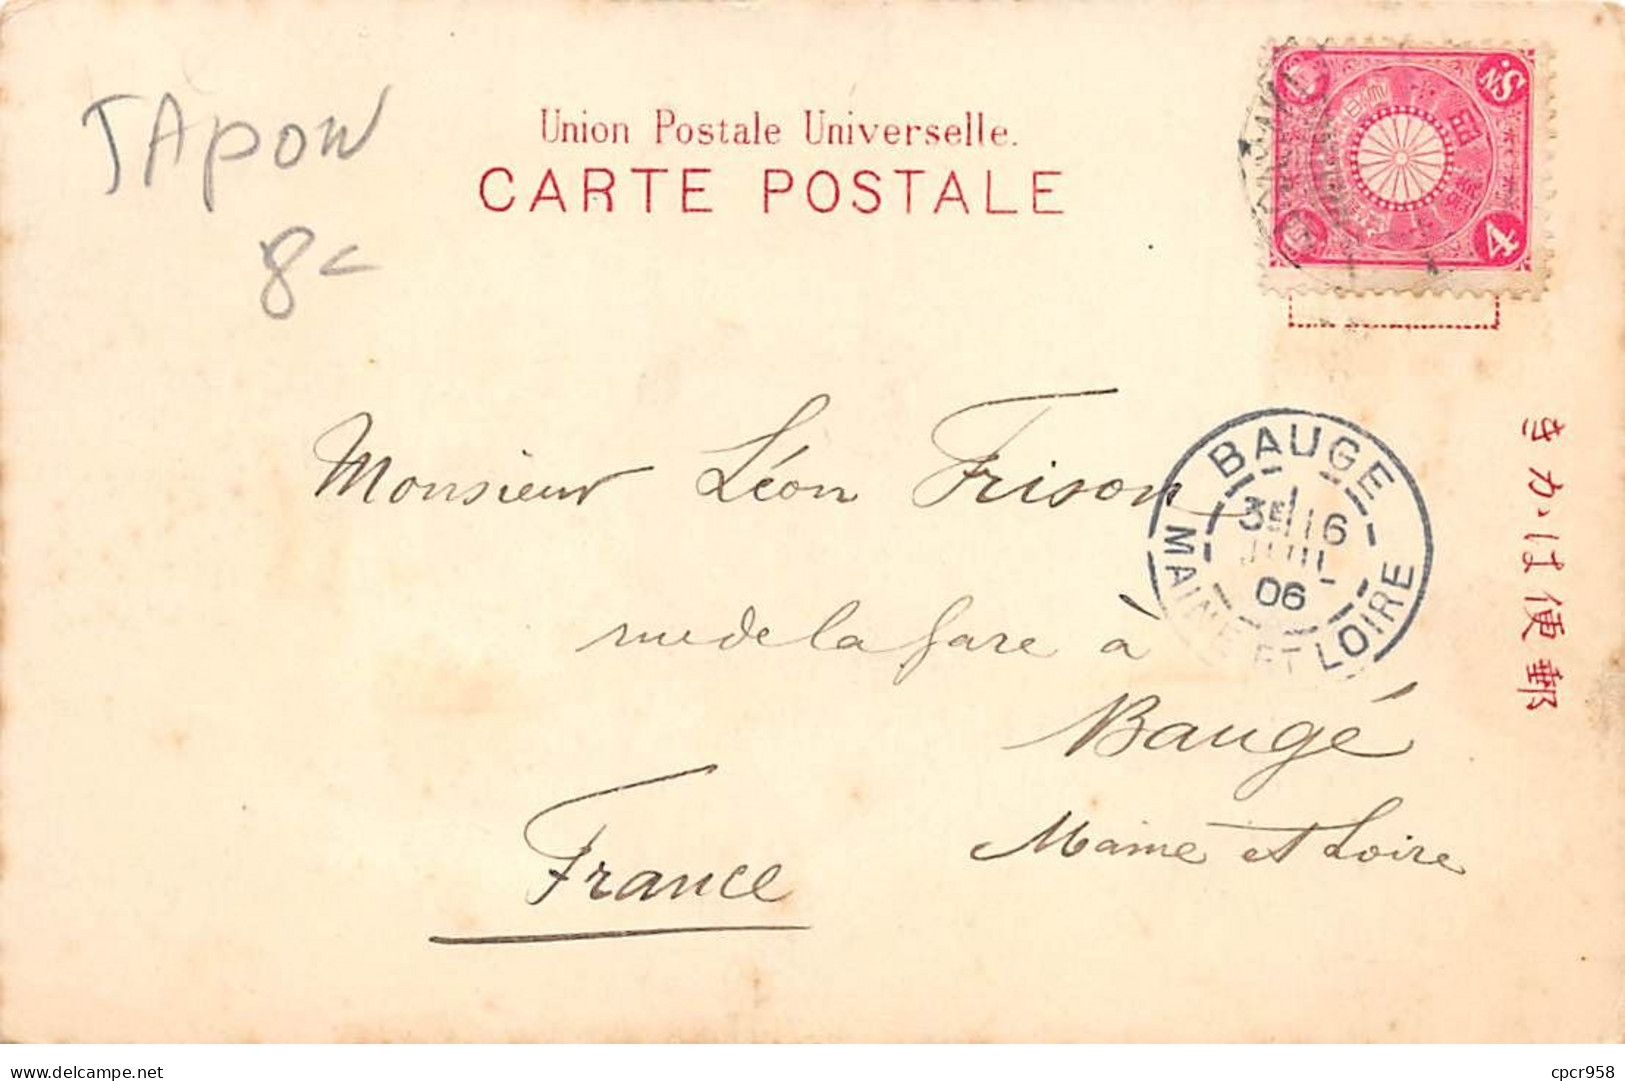 JApon
8c
Union Postale Universelle.
CARTE POSTALE
4
Sn.
きかは便郵
BAUGE
3E 16
JUIL
06
MAINE ET LOIRE
Monsieur Léon Frison
rue de la gare à
Baugé
Maine et Loire
France
cpcr958